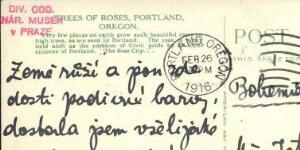 DIV. ODD.
NÁR. MUSEA
v PRAZE
TREES OF ROSES, PORTLAND,
OREGON.
Very few places on earth grow such beautiful
high trees, as are seen in Portland. The
held aloft as the emblem of Civic pride by
citizens of Portland. The Rose City.
PORTLAND, OREGON
FEB 26
PM
1916
POST
AMERICAN ART
Země růží a
dosti podivné barvy,
dostala jsem všelijaké
Bohemi